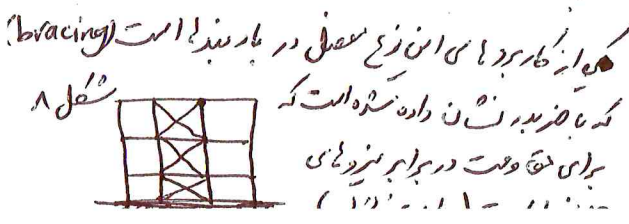 یکی از کاربردهای این نوع مفصل در بادبندها است (bracing)
که با ضربدر نشان داده شده است که
شکل ۸
برای مقاومت در برابر نیروهای